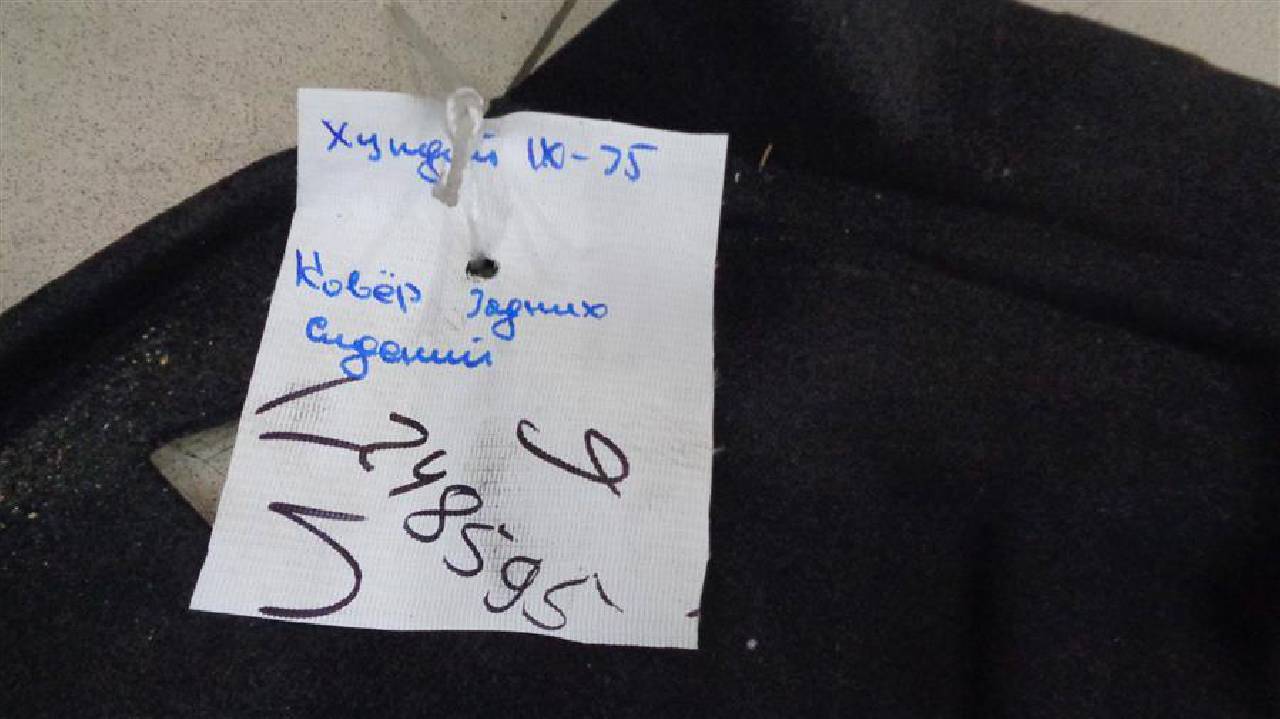 Хундай IX-35
Ковёр задних
сидений
248595